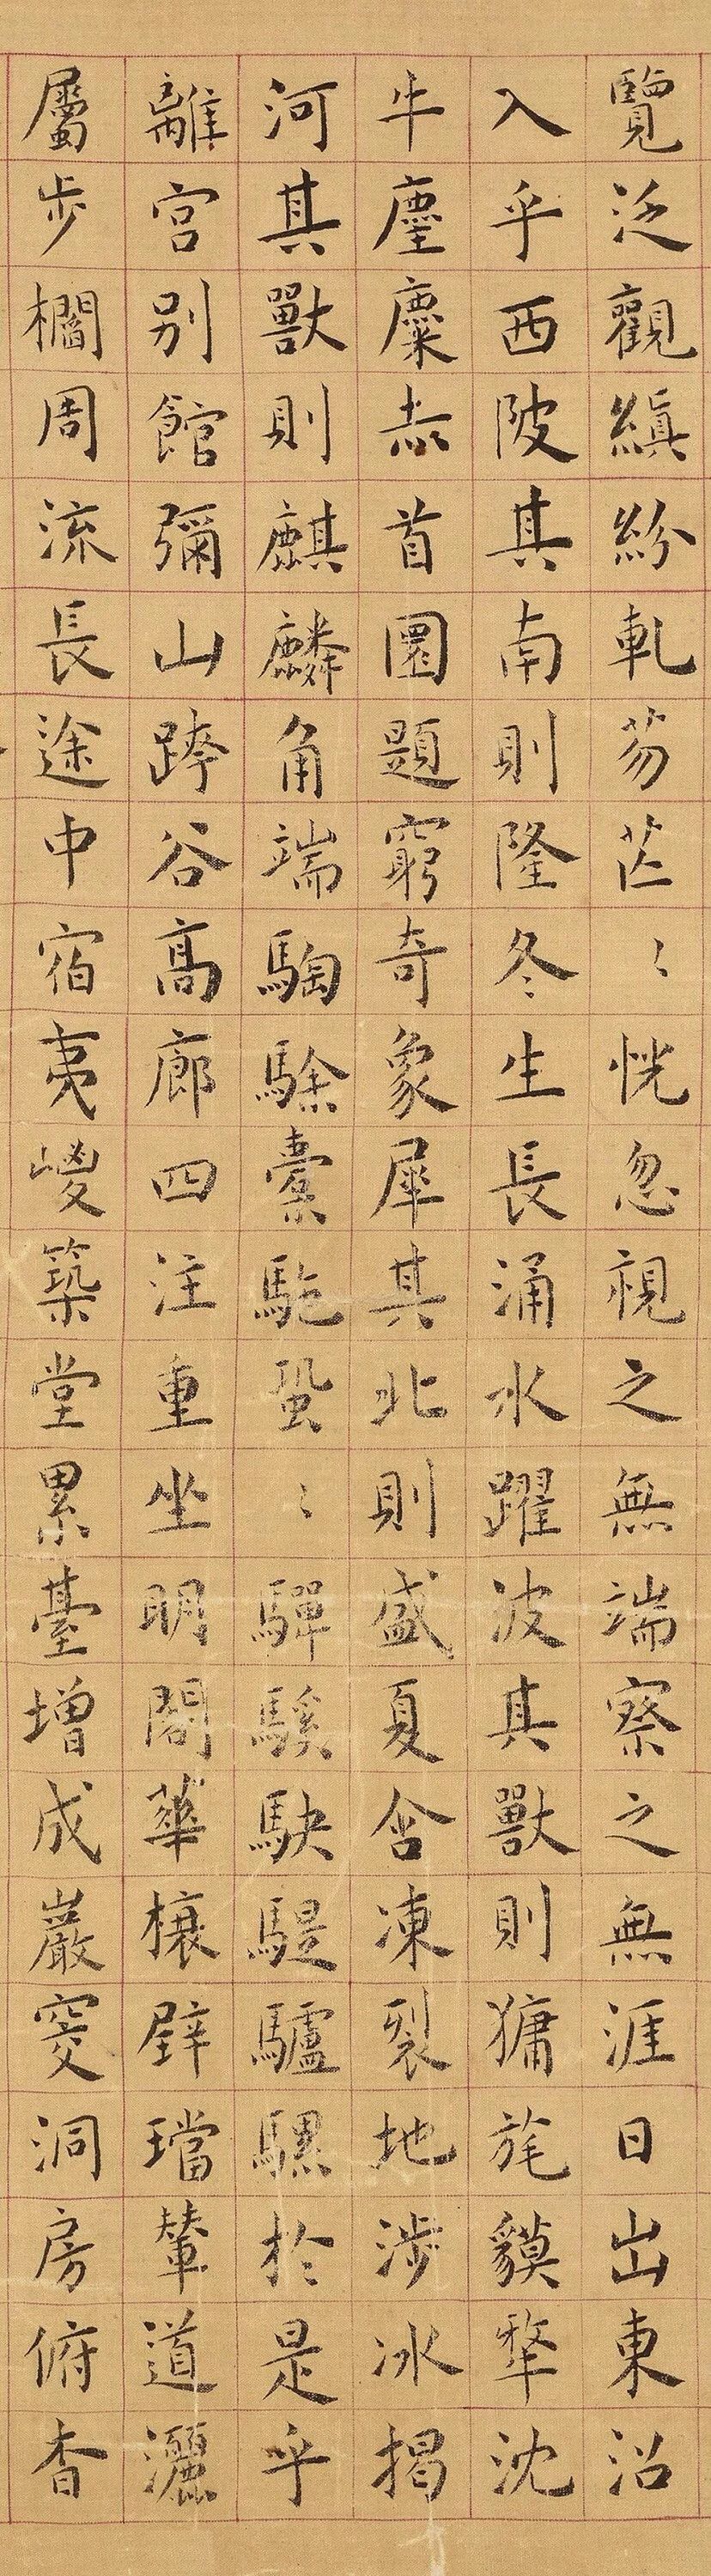 覽泛觀縝紛軋芴芒〻恍忽視之無端察之無涯日出東沼
入乎西陂其南則隆冬生長涌水躍波其獸則㺎旄貘犛沈
牛麈麋赤首圜題窮奇象犀其北則盛夏含凍裂地涉冰揭
河其獸則麒麟角端騊駼橐駞蛩〻驒騱駃騠驢騾於是乎
離宮别館彌山跨谷高廊四注重坐明閣華榱璧璫輦道灑
屬步櫩周流長途中宿夷嵏築堂累臺增成巖窔洞房俯杳